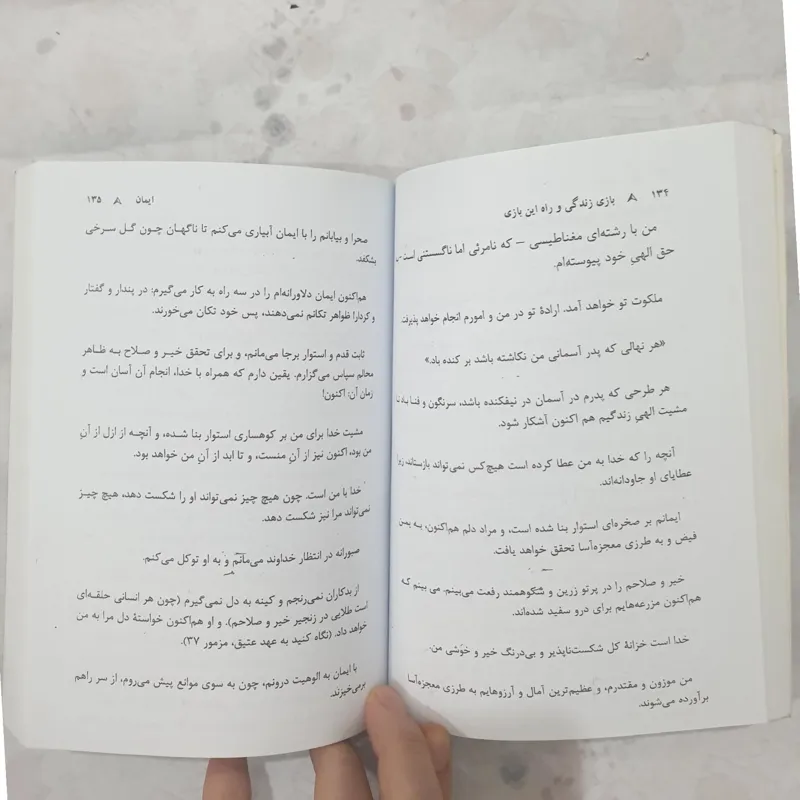 ۱۳۴ بازی زندگی و راه این بازی
من با رشته‌ای مغناطیسی – که نامرئی اما ناگسستنی است –
حق الهیِ خود پیوسته‌ام.
ملکوت تو خواهد آمد. ارادهٔ تو در من و امورم انجام خواهد پذیرفت.
«هر نهالی که پدر آسمانی من نکاشته باشد بر کنده باد.»
هر طرحی که پدرم در آسمان در نیفکنده باشد، سرنگون و فنا باد تا
مشیت الهیِ زندگیم هم اکنون آشکار شود.
آنچه را که خدا به من عطا کرده است هیچ‌کس نمی‌تواند بازستاند، زیرا
عطایای او جاودانه‌اند.
ایمانم بر صخره‌ای استوار بنا شده است، و مراد دلم هم‌اکنون، به یمن
فیض و به طرزی معجزه‌آسا تحقق خواهد یافت.
خیر و صلاحم را در پرتو زرین و شکوهمند رفعت می‌بینم. می بینم که
هم‌اکنون مزرعه‌هایم برای درو سفید شده‌اند.
خدا است خزانهٔ کل شکست‌ناپذیر و بی‌درنگ خیر و خوشی من.
من موزون و مقتدرم، و عظیم‌ترین آمال و آرزوهایم به طرزی معجزه‌آسا
برآورده می‌شوند.
ایمان ۱۳۵
صحرا و بیابانم را با ایمان آبیاری می‌کنم تا ناگهان چون گل سرخی
بشکفد.
هم‌اکنون ایمان دلاورانه‌ام را در سه راه به کار می‌گیرم: در پندار و گفتار
و کردار! ظواهر تکانم نمی‌دهند، پس خود تکان می‌خورند.
ثابت قدم و استوار برجا می‌مانم، و برای تحقق خیر و صلاح به ظاهر
محالم سپاس می‌گزارم. یقین دارم که همراه با خدا، انجام آن آسان است و
زمان آن: اکنون!
مشیت خدا برای من بر کوهساری استوار بنا شده، و آنچه از ازل از آنِ
من بود، اکنون نیز از آنِ منست، و تا ابد از آنِ من خواهد بود.
خدا با من است. چون هیچ چیز نمی‌تواند او را شکست دهد، هیچ چیز
نمی‌تواند مرا نیز شکست دهد.
صبورانه در انتظار خداوند می‌مانم و به او توکل می‌کنم.
از بدکاران نمی‌رنجم و کینه به دل نمی‌گیرم (چون هر انسانی حلقه‌ای
است طلایی در زنجیر خیر و صلاحم). و او هم‌اکنون خواستهٔ دل مرا به من
خواهد داد. (نگاه کنید به عهد عتیق، مزمور ۳۷).
با ایمان به الوهیت درونم، چون به سوی موانع پیش می‌روم، از سر راهم
برمی‌خیزند.